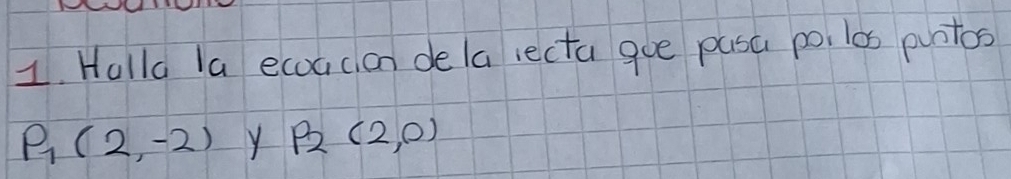 1. Halla la ecuacion de la recta que pasa por los puntos
P1 (2,-2) y P2 (2,0)